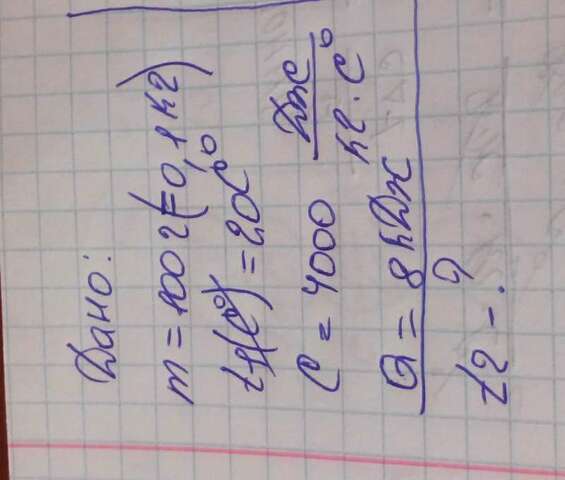 Дано:
m = 100 г (= 0,1 кг)
t1 (C°) = 20 C°
C = 4000 Дж / кг · C°
Q = 8 кДж
t2 - ?